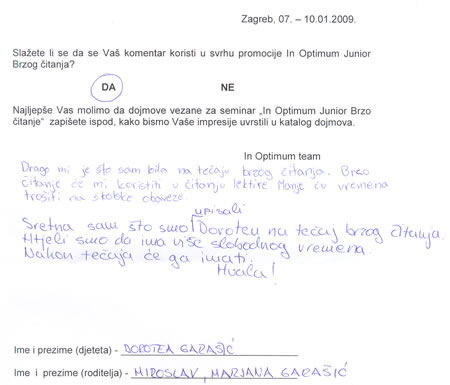 Zagreb, 07. – 10.01.2009.
Slažete li se da se Vaš komentar koristi u svrhu promocije In Optimum Junior
Brzog čitanja?
DA NE
Najljepše Vas molimo da dojmove vezane za seminar „In Optimum Junior Brzo
čitanje“ zapišete ispod, kako bismo Vaše impresije uvrstili u katalog dojmova.
In Optimum team
Drago mi je što sam bila na tečaju brzog čitanja. Brzo
čitanje će mi koristiti u čitanju lektire. Manje ću vremena
trošiti na školske obaveze.
upisali
Sretna sam što smo Doroteu na tečaj brzog čitanja.
Htjeli smo da ima više slobodnog vremena.
Nakon tečaja će ga imati.
Hvala!
Ime i prezime (djeteta) - DOROTEA GARAŠIĆ
Ime i prezime (roditelja) - MIROSLAV, MARJANA GARAŠIĆ